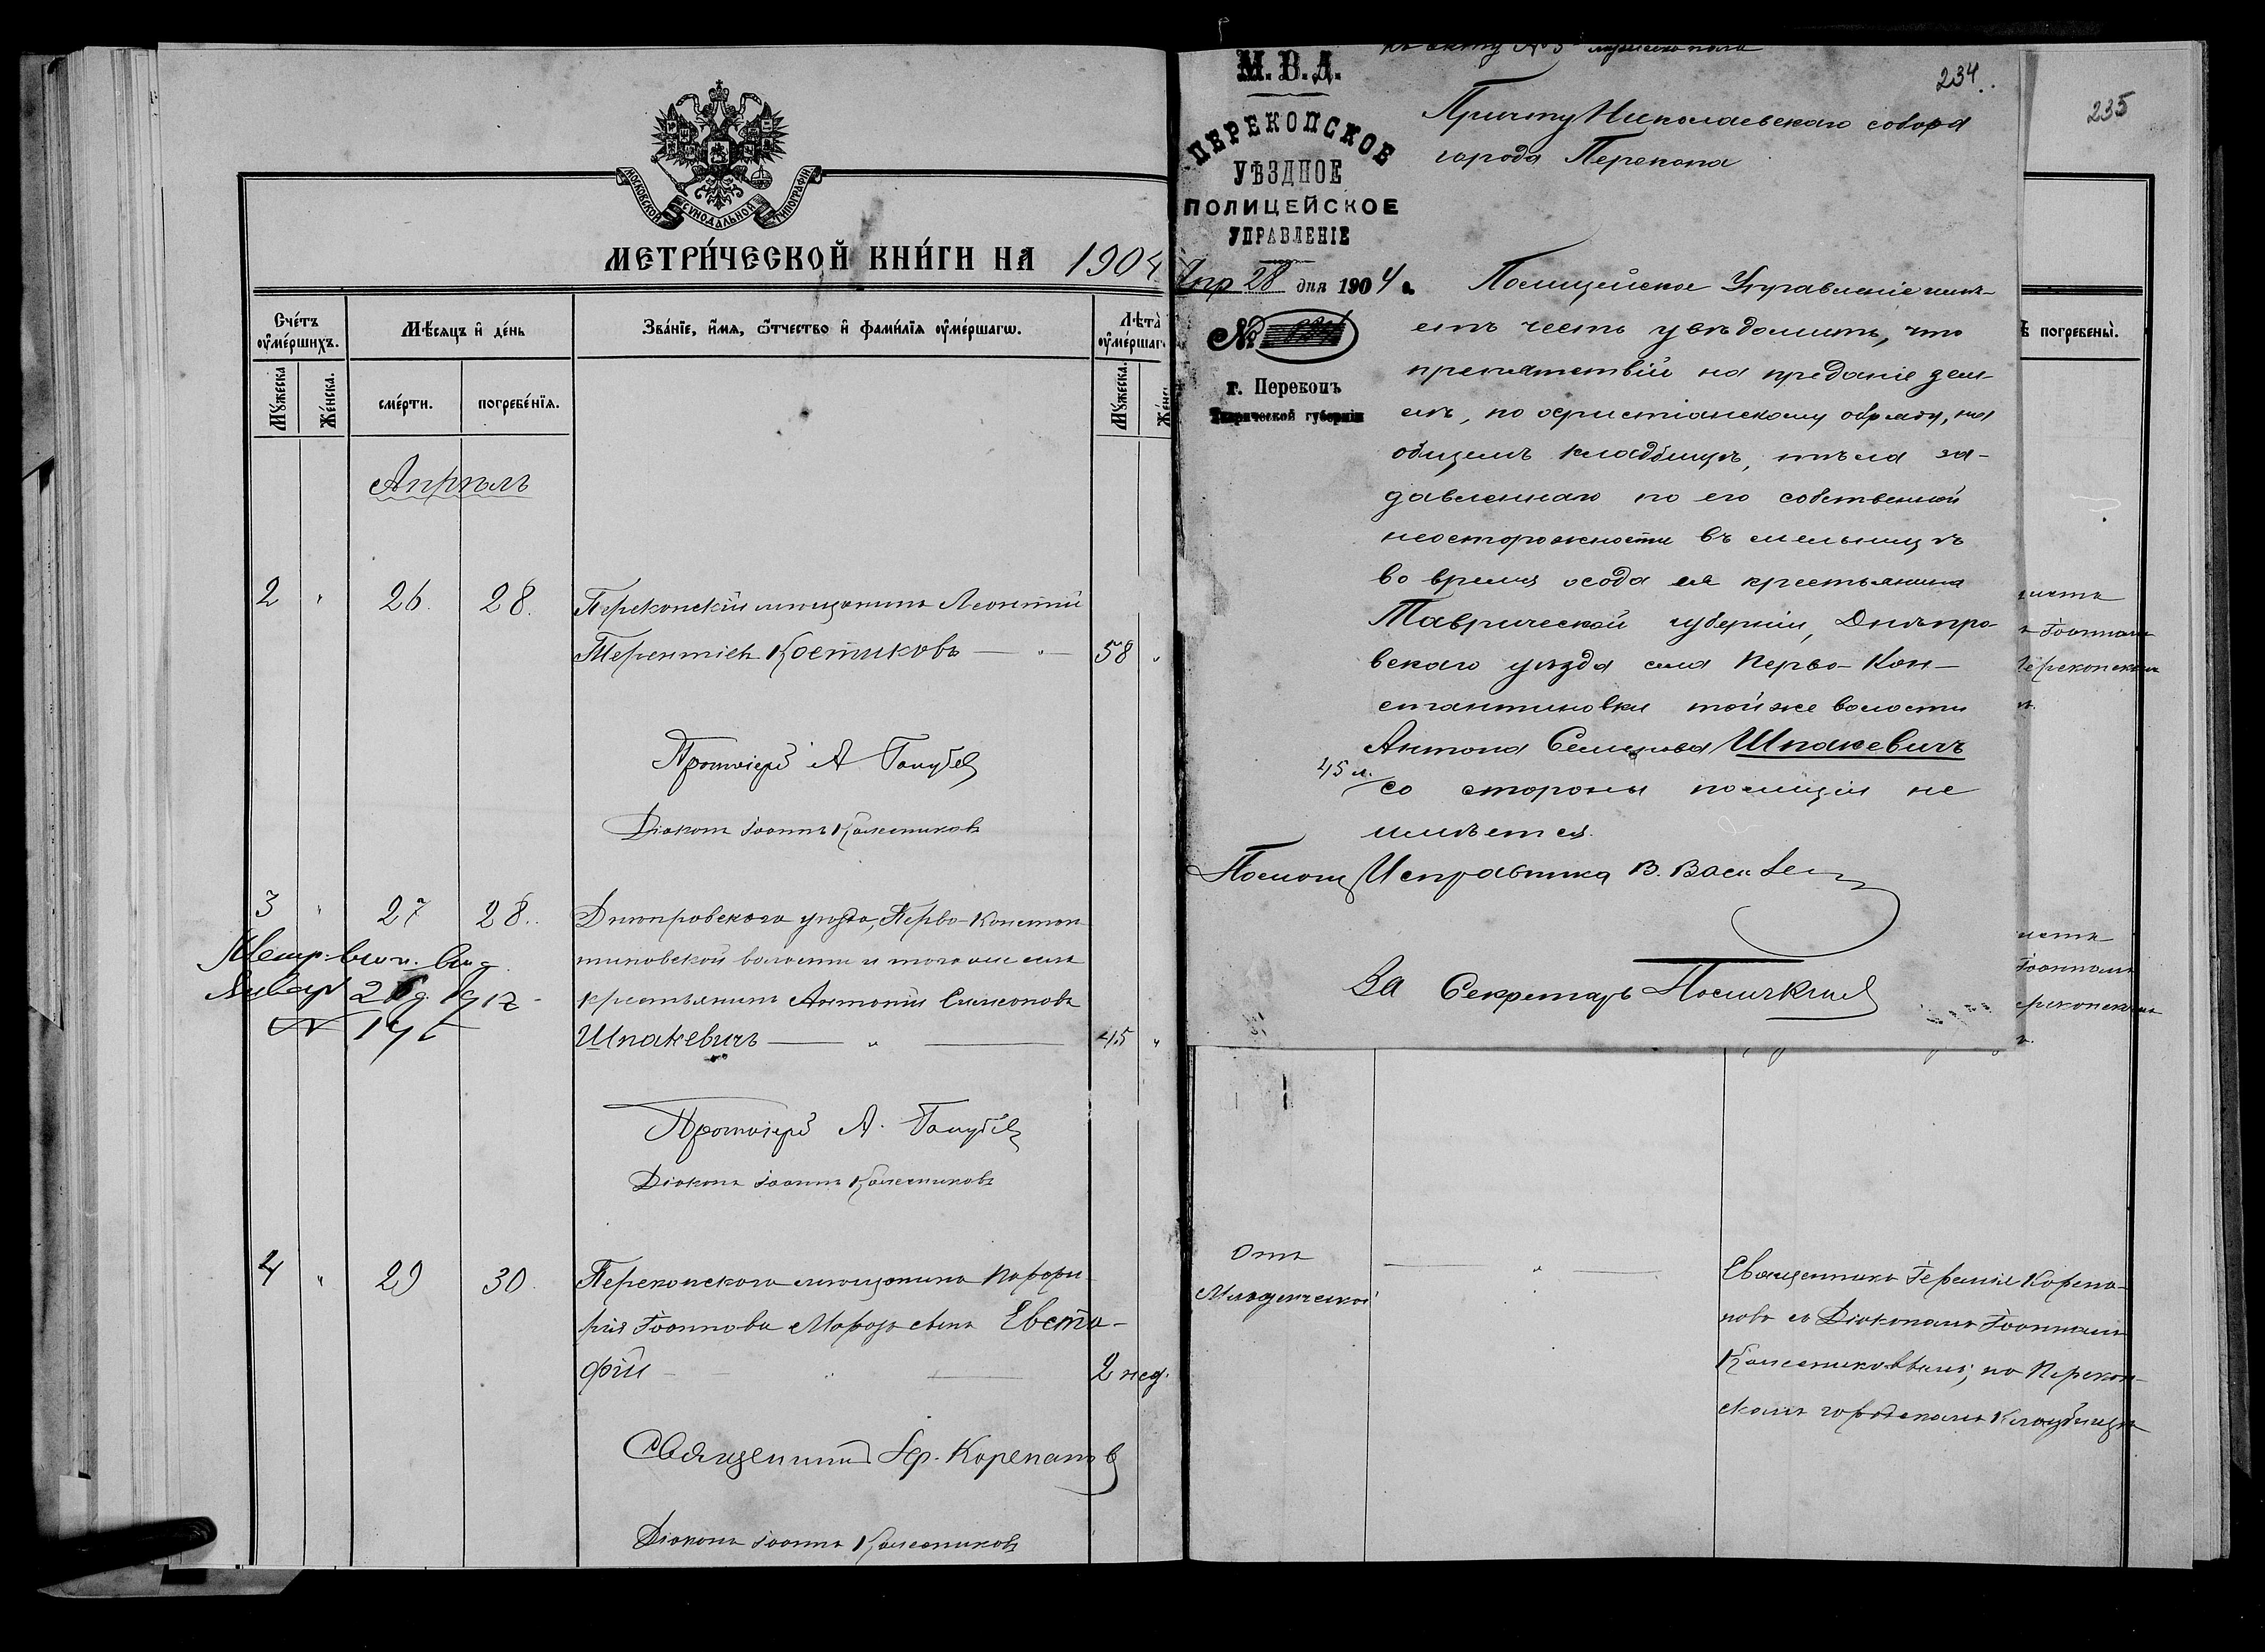 МОСКОВСКОЙ СѴНОДАЛЬНОЙ ТИПОГРАФІИ
МЕТРИ́ЧЕСКОЙ КНИ́ГИ НА 1904
Сче́тъ ᲂу҆ме́ршихъ.
Мѣ́сяцъ и҆ де́нь
Зва́нїе, и҆́мя, ѻ҆́тчество и҆ фами́лїя ᲂу҆ме́ршагѡ.
Лѣ́та ᲂу҆ме́ршаг
Мꙋ́жеска
Же́нска.
сме́рти.
погребе́нїя.
Мꙋ́жеска.
Апрѣль
2 " 26. 28. Перекопскій мѣщанинъ Леонтій
Терентіев Костиковъ — " — 58 "
Протоіерей А Голубев
Діаконъ Іоаннъ Колесниковъ
3 " 27 28. Днѣпровскаго уѣзда, Перво-Констан
тиновской волости и того же села
крестьянинъ Антоній Симеоновъ
Шпакевичъ — " — 45 "
Метр. вып. выд.
Январ 26 д. 1912
Протоіерей А. Голубев
Діаконъ Іоаннъ Колесниковъ
4 " 29 30. Перекопскаго мѣщанина Порфи-
рія Іоаннова Мороз сынъ Евста-
фій — 2 нед.
Священник Гер. Корепанов
Діаконъ Іоаннъ Колесниковъ
къ акту № 3 мужеска пола
234.
М. В. Д.
ПЕРЕКОПСКОЕ
УѢЗДНОЕ
ПОЛИЦЕЙСКОЕ
УПРАВЛЕНІЕ
Апр 28 дня 1904 г.
№
г. Перекопъ
Таврической губерніи
Причту Николаевскаго собора
города Перекопа
Полицейское Управленіе имѣ-
етъ честь увѣдомить, что
препятствій на преданіе зем-
лѣ, по христіанскому обряду, на
общемъ кладбищѣ, тѣла за-
давленнаго по его собственной
неосторожности въ мельницѣ
во время хода ея крестьянина
Таврической губерніи, Днѣпро-
вскаго уѣзда села Перво-Кон-
стантиновки той же волости
Антона Семенова Шпакевичъ
45 л.
со стороны полиціи не
имѣется.
Помощ Исправника В.
За Секретаря
235
погребены̀.
Іоанномъ
Іоанномъ
Отъ
Младенческой
— " —
Священникъ Герасим Корепа-
новъ съ Діакономъ Іоанномъ
Колесниковымъ; на Перекоп-
скомъ городскомъ кладбищѣ